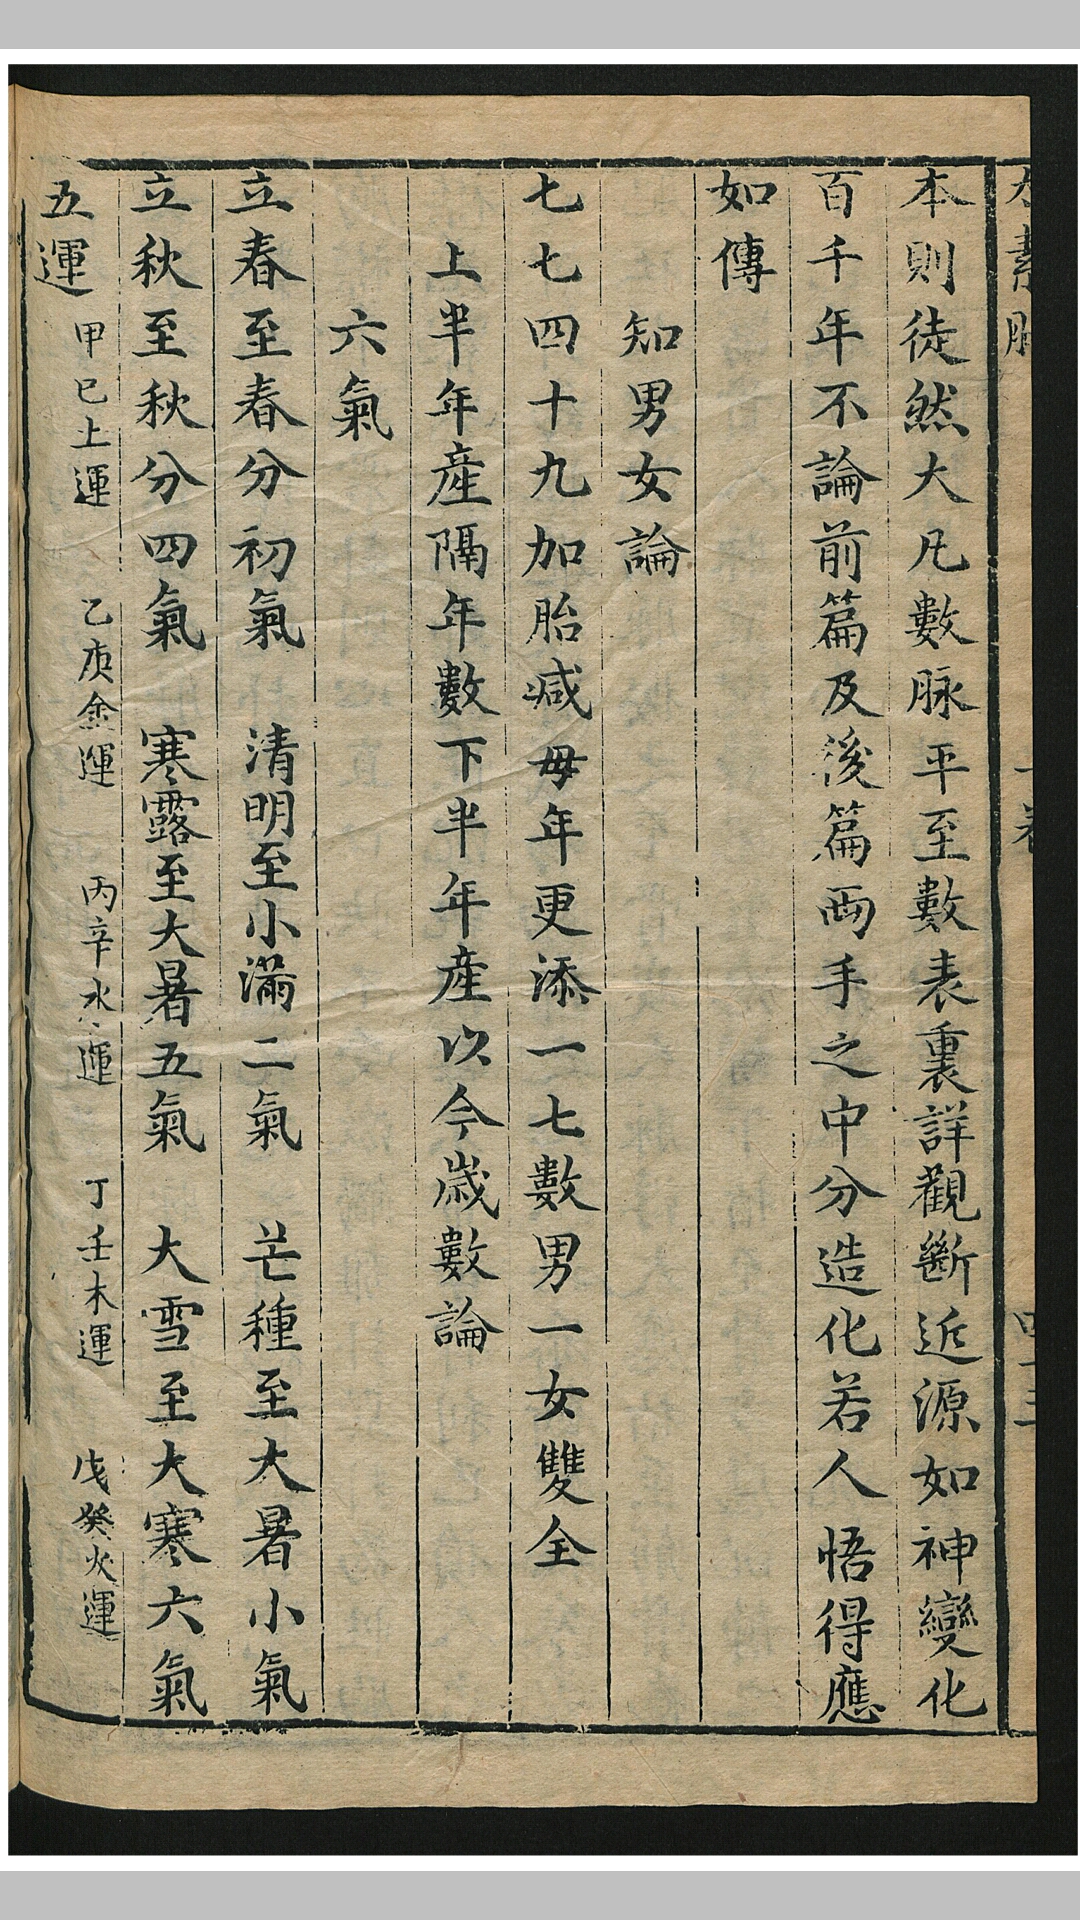 本則徒然大凡數脉平至數表裏詳觀斷近源如神變化
百千年不論前篇及後篇両手之中分造化若人悟得應
如傳
知男女論
七七四十九加胎减毋年更添一七數男一女雙全
上半年産隔年數下半年産以今歳數論
六氣
立春至春分初氣 清明至小滿二氣 芒種至大暑小氣
立秋至秋分四氣 寒露至大暑五氣 大雪至大寒六氣
五運 甲巳土運 乙庚金運 丙辛水運 丁壬木運 戊癸火運